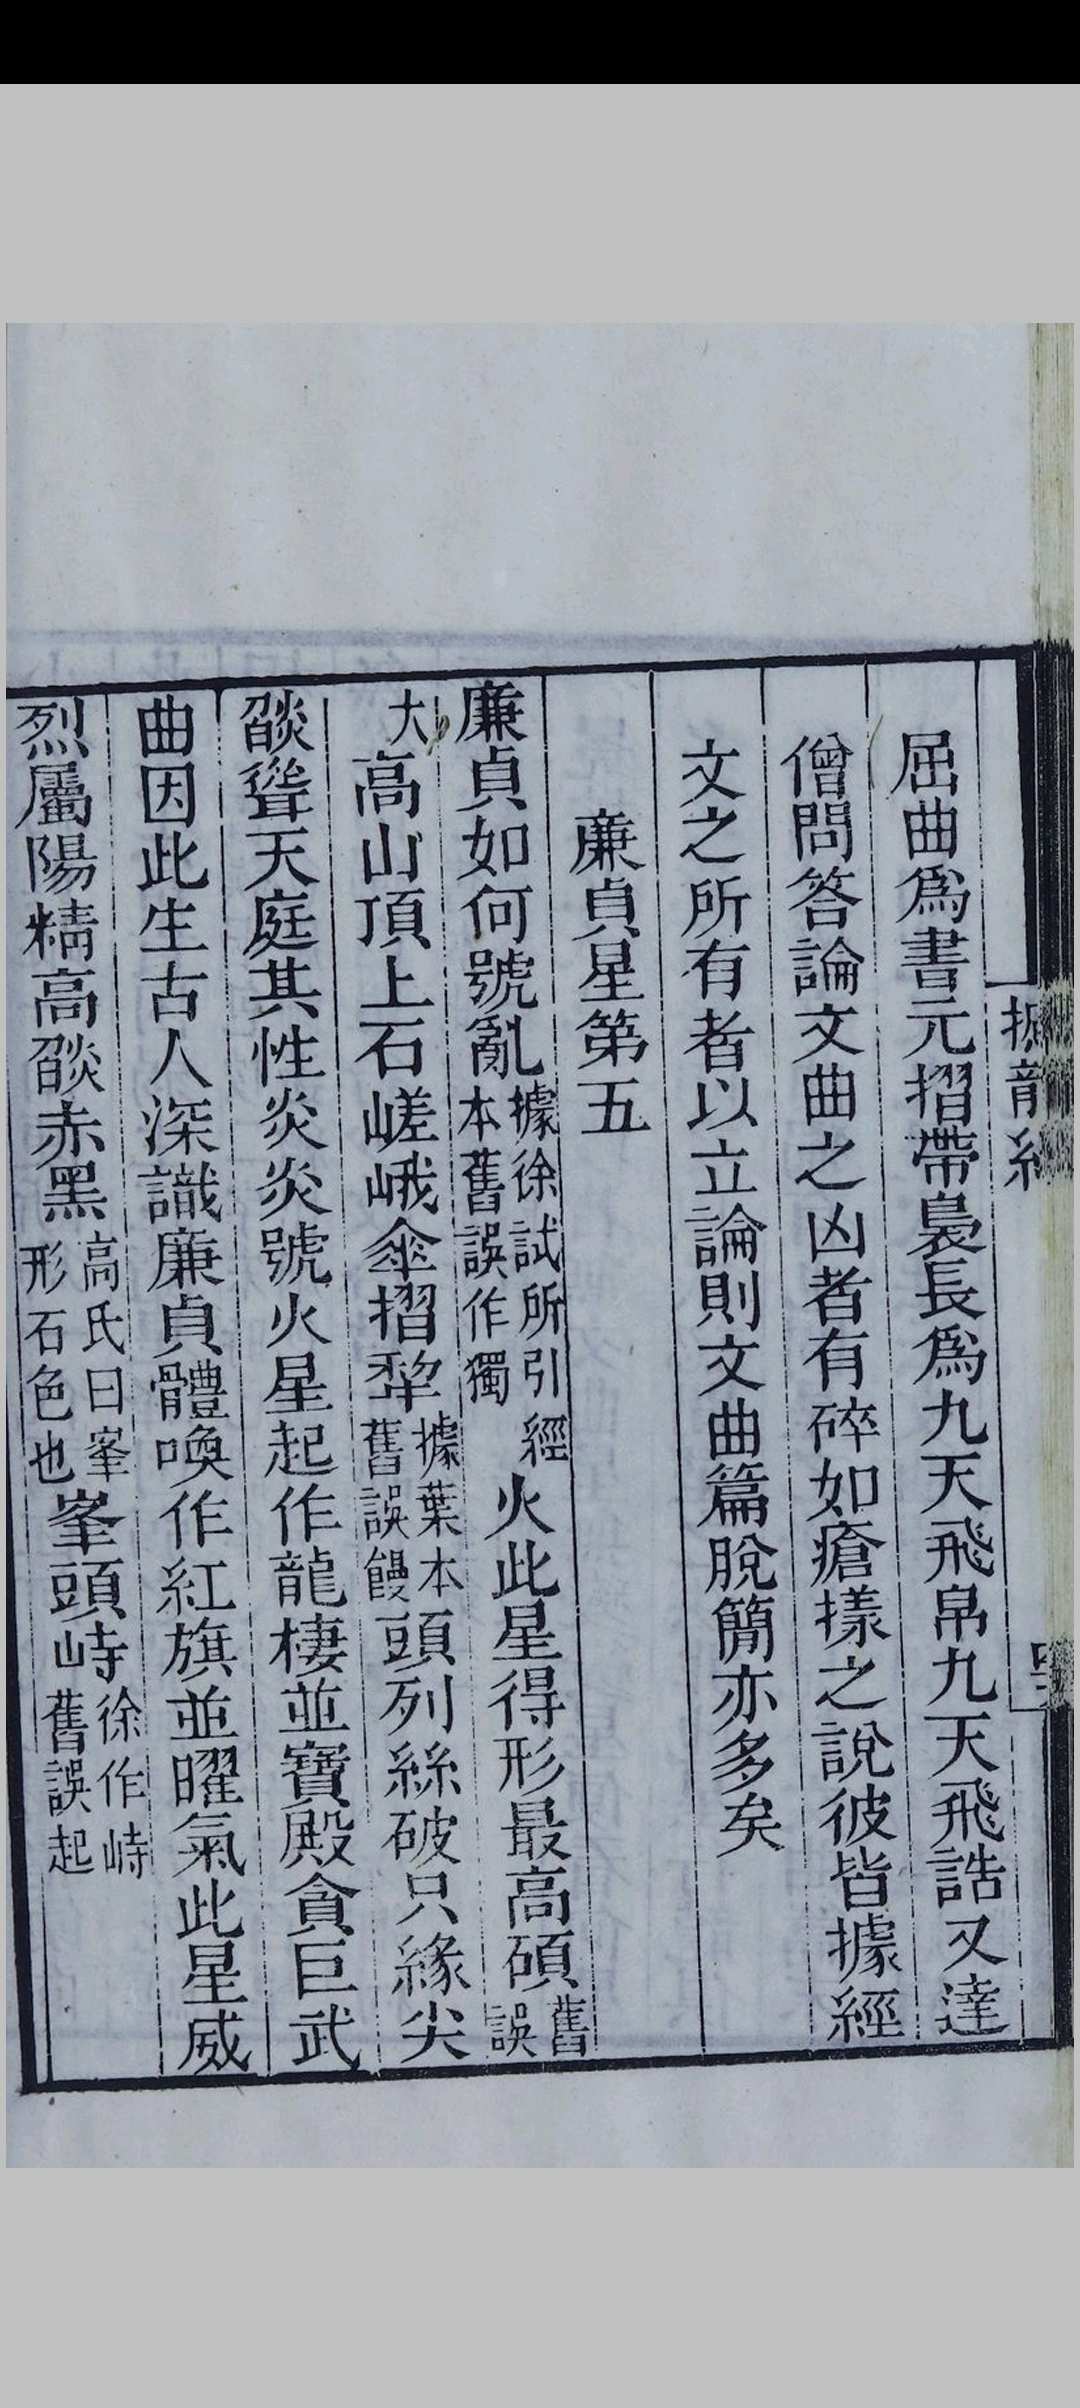 撼龍經
屈曲爲書元摺帶裊長爲九天飛帛九天飛誥又達
僧問答論文曲之凶者有碎如瘡樣之說彼皆據經
文之所有者以立論則文曲篇脫簡亦多矣
廉貞星第五
廉貞如何號亂據徐試所引經本舊誤作獨火此星得形最高碩舊誤
大高山頂上石嵯峨傘摺犂據葉本舊誤饅頭列絲破只緣尖
燄聳天庭其性炎炎號火星起作龍樓並寶殿貪巨武
曲因此生古人深識廉貞體喚作紅旗並曜氣此星威
烈屬陽精高燄赤黑高氏曰峯形石色也峯頭峙徐作峙舊誤起